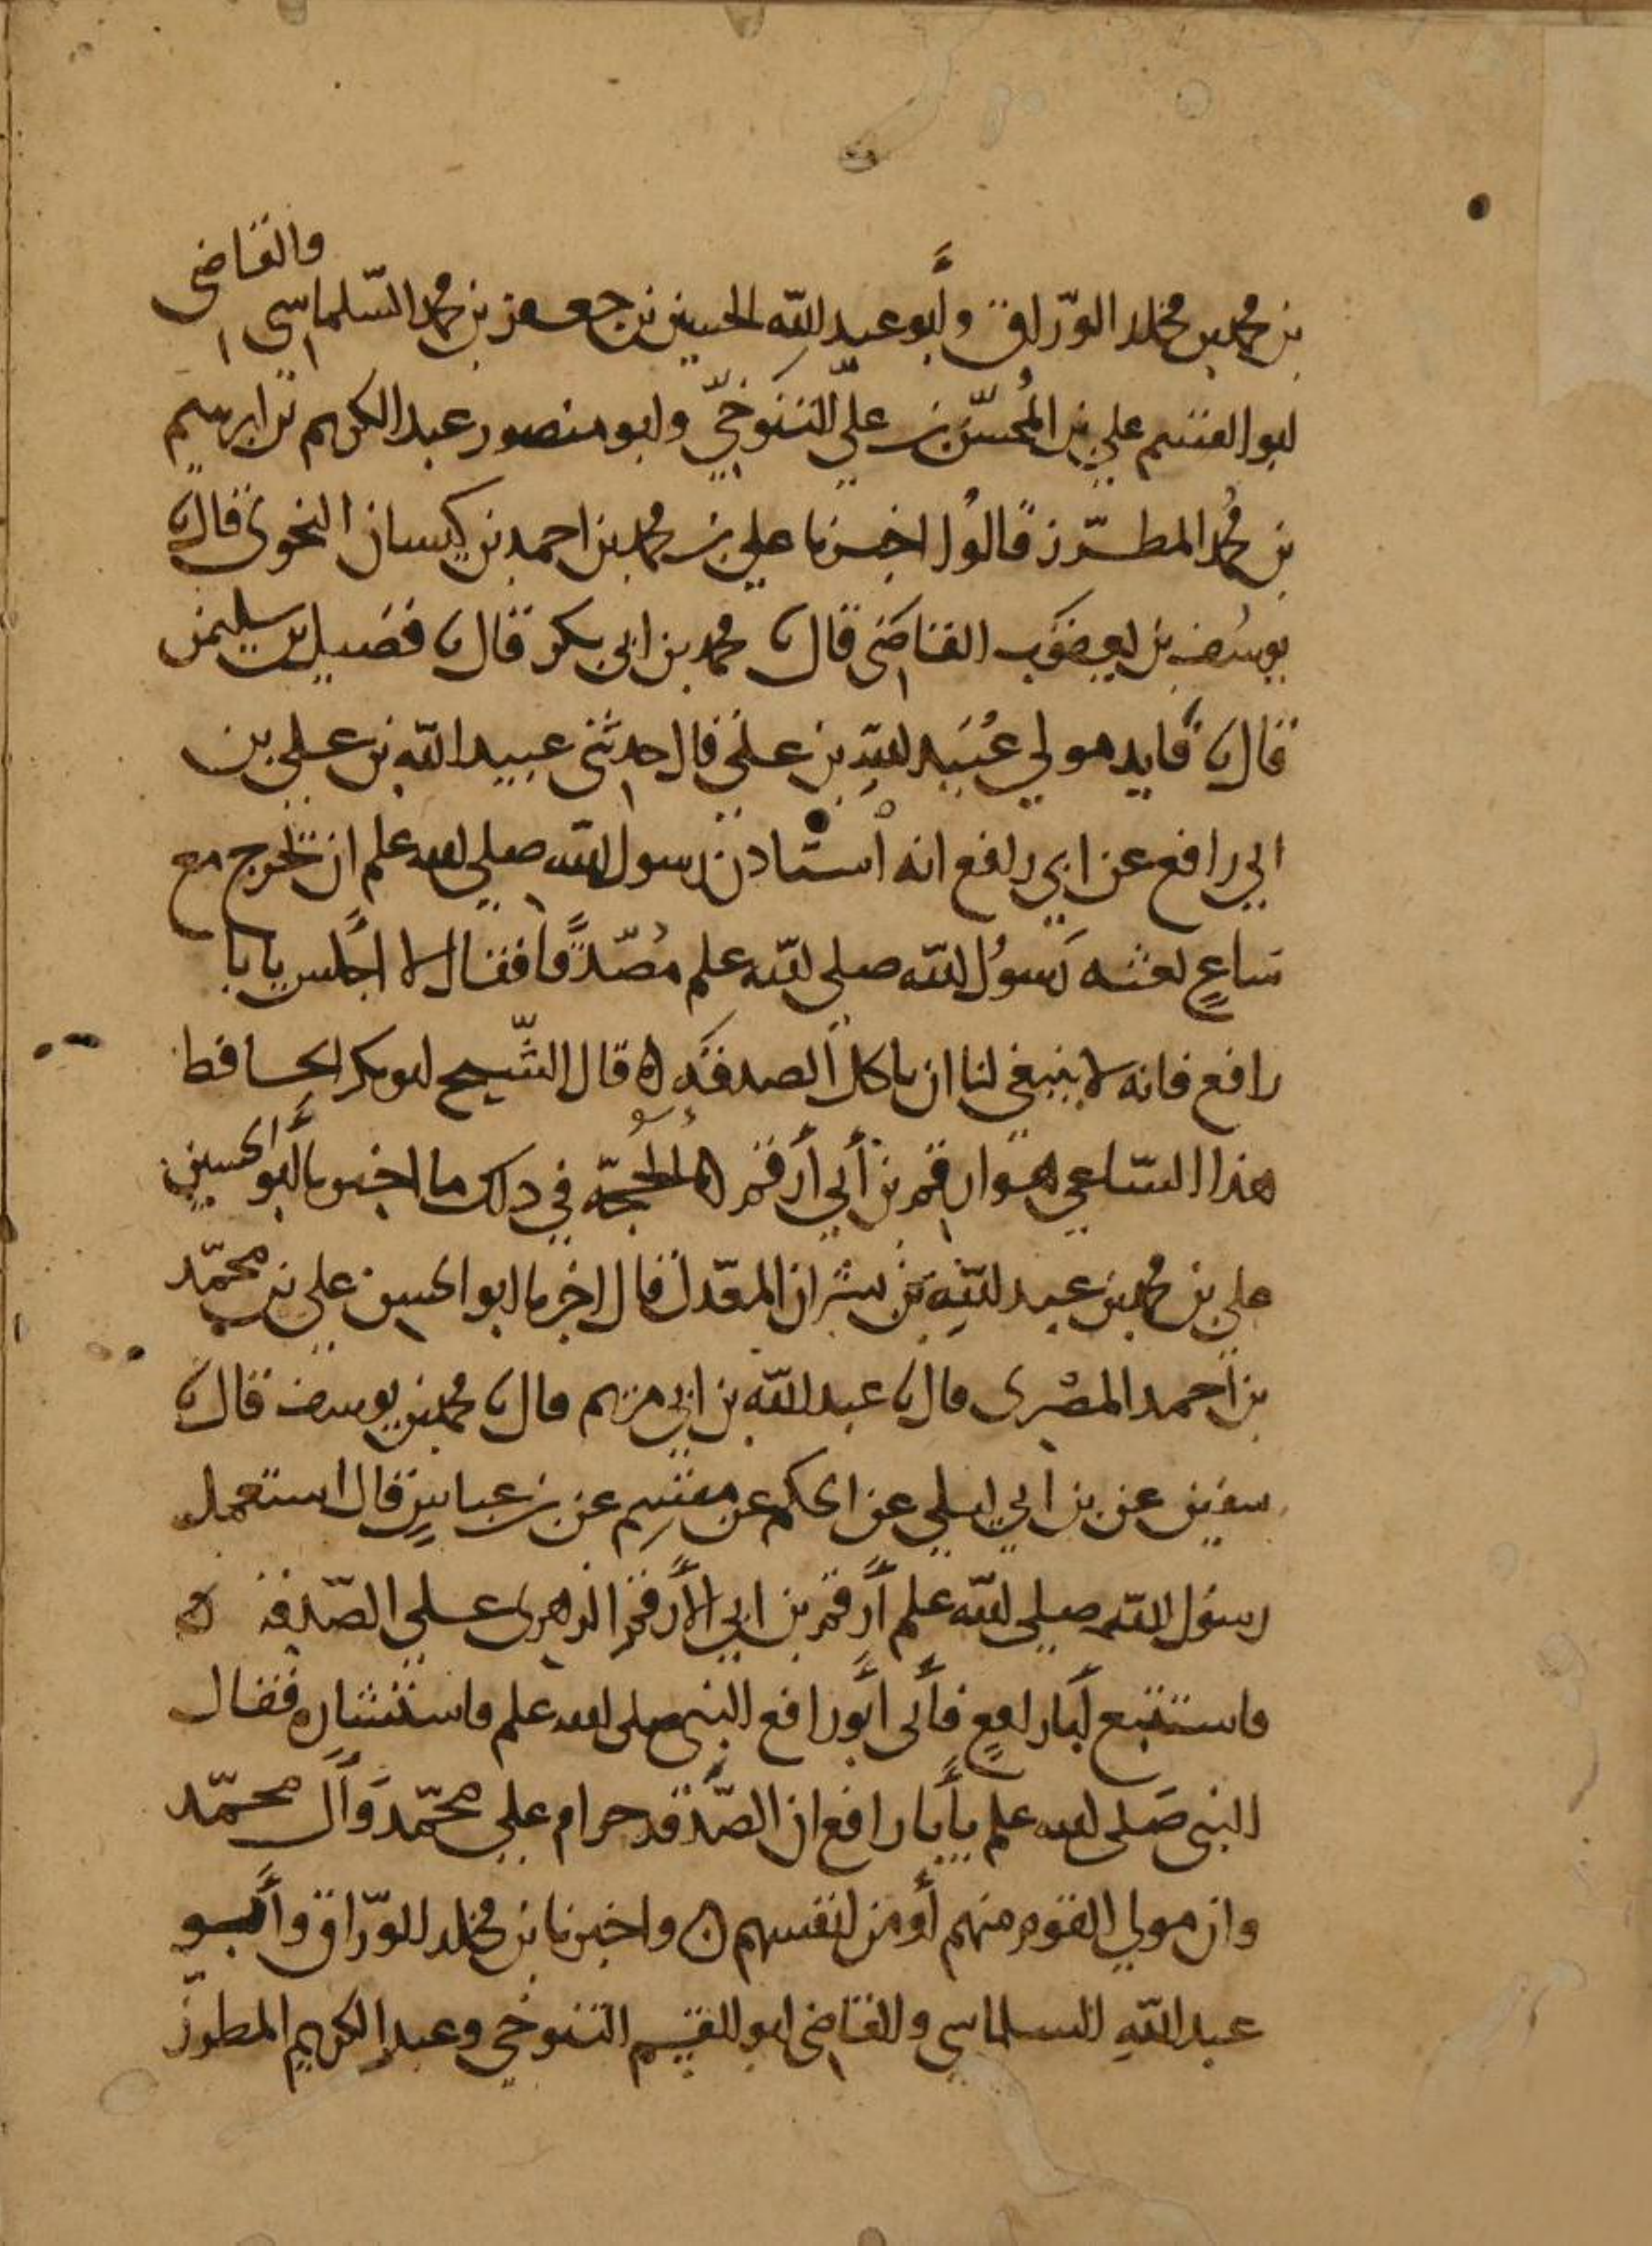 بن محمد بن مخلد الورّاق وأبو عبد الله الحسين بن جعفر بن محمد السّلماسي والقاضي
ابو القسم علي بن المُحسّن بن علي التنوخيّ وابو منصور عبد الكريم بن ابرهيم
بن محمد المطرّز قالوا اخبرنا علي بن محمد بن احمد بن كيسان النحوي قال نا
يوسُف بن يعقوب القاضي قال نا محمد بن ابي بكر قال نا فضيل بن سليمن
قال نا فايد مولي عُبَيد الله بن علي قال حدثني عبيد الله بن علي بن
ابي رافع عن ابي رافع انه استاذن رسول الله صلى الله علم ان يخرج مع
ساعٍ بعثه رسُول الله صلى الله علم مُصّدّقًا فقال لا اجلس يابا
رافع فانه لا ينبغي لنا ان ناكل الصدقه ه قال الشّيخ ابو بكر الحافظ
هذا السّاعي هو ارقم بن أبي أرقم ه والحُجّه في ذلك ما اخبرنا أبو الحسين
علي بن محمد بن عبد الله بن بشران المعدّل قال اخبرنا ابو الحسن علي بن محمّد
بن احمد المصْري قال نا عبد الله بن ابي مريم قال نا محمد بن يوسف قال نا
سفين عن بن ابي ليلي عن الحكم عن مِقسم عن بن عباسٍ قال استعمل
رسُول الله صلى الله علم أرقم بن ابي الأرقم الزهري علي الصّدقة ه
فاستتبع أبا رافعٍ فأتى أبو رافع النبي صلى الله علم فاستشاره فقال
النبي صَلى الله علم يأبا رافع ان الصّدقه حرام علي محمّد وَآل محمّد
وان مولي القوم منهم أو من انفسهم ه واخبرنا بن مخلد الورّاق وأبو
عبد الله السلماسي والقاضي ابو القسم التنوخي وعبد الكريم المطرّز